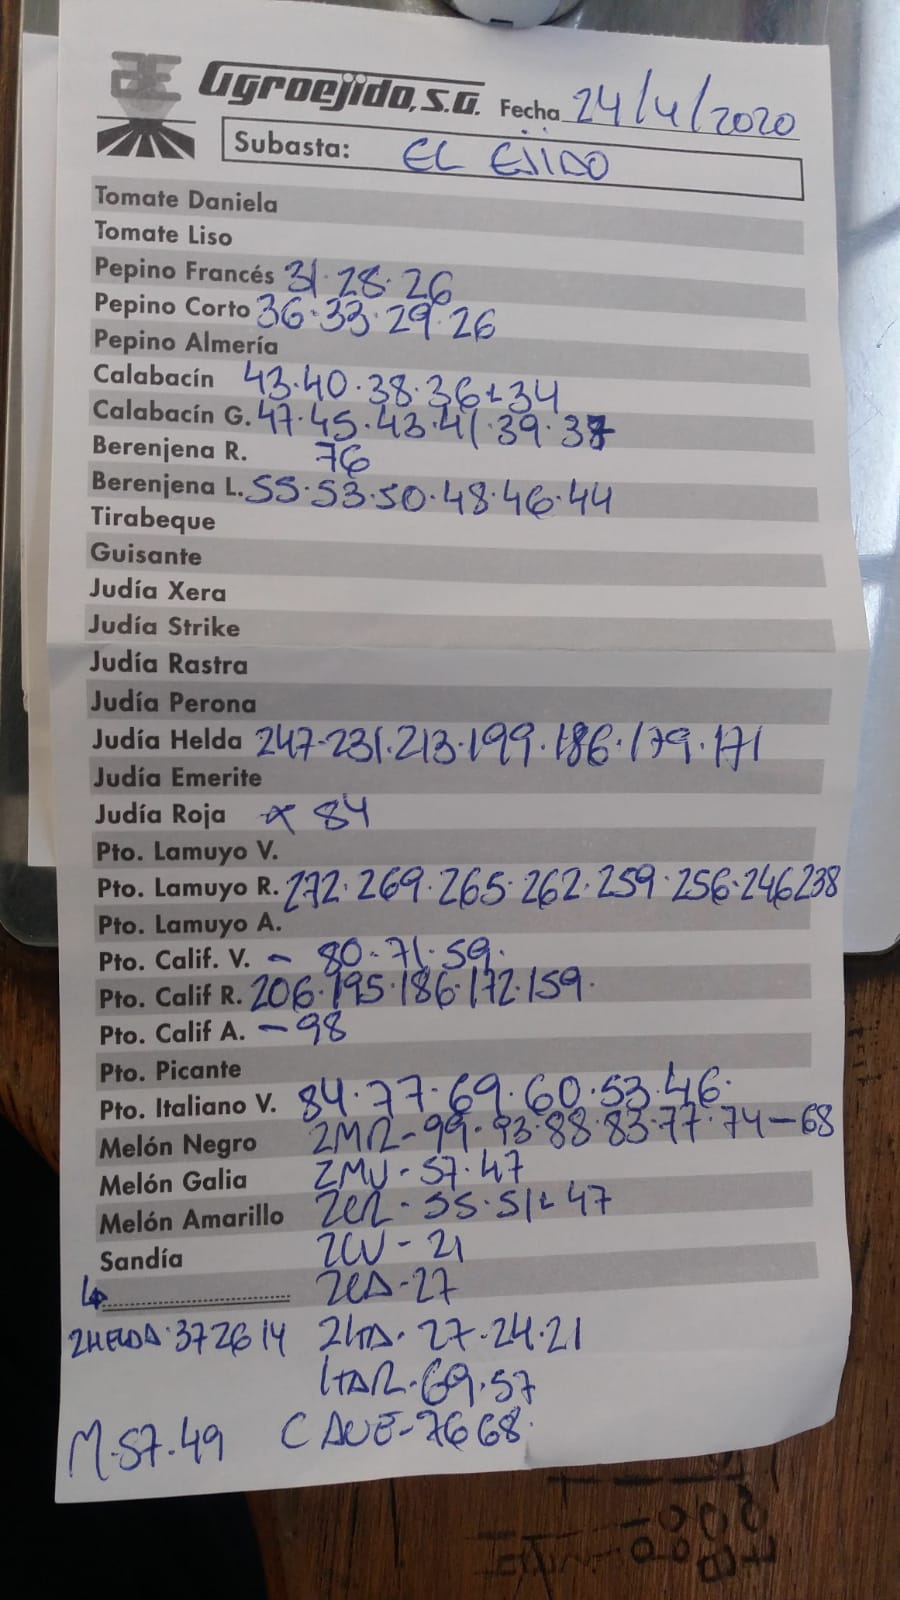 Agroejido, S.A. Fecha 24/4/2020
Subasta: EL EJIDO
Tomate Daniela
Tomate Liso
Pepino Francés 31·28·26
Pepino Corto 36·33·29·26
Pepino Almería
Calabacín 43·40·38·36 34
Calabacín G. 47·45·43·41·39·37
Berenjena R. 76
Berenjena L. 55·53·50·48·46·44
Tirabeque
Guisante
Judía Xera
Judía Strike
Judía Rastra
Judía Perona
Judía Helda 247·231·213·199·186·179·171
Judía Emerite
Judía Roja 84
Pto. Lamuyo V.
Pto. Lamuyo R. 272·269·265·262·259·256·246 238
Pto. Lamuyo A.
Pto. Calif. V. - 80·71·59·
Pto. Calif R. 206·195·186·172·159·
Pto. Calif A. - 98
Pto. Picante
Pto. Italiano V. 84·77·69·60·53·46·
Melón Negro 2MR-99·93·88·83·77·74-68
Melón Galia 2MV-57·47
Melón Amarillo 2CR-55·51 47
Sandía 2CV-21
2CA-27
2HELDA·37 26 14 2ITA·27·24·21
ITAR·69·57
M·57·49 CAVE-76 68·